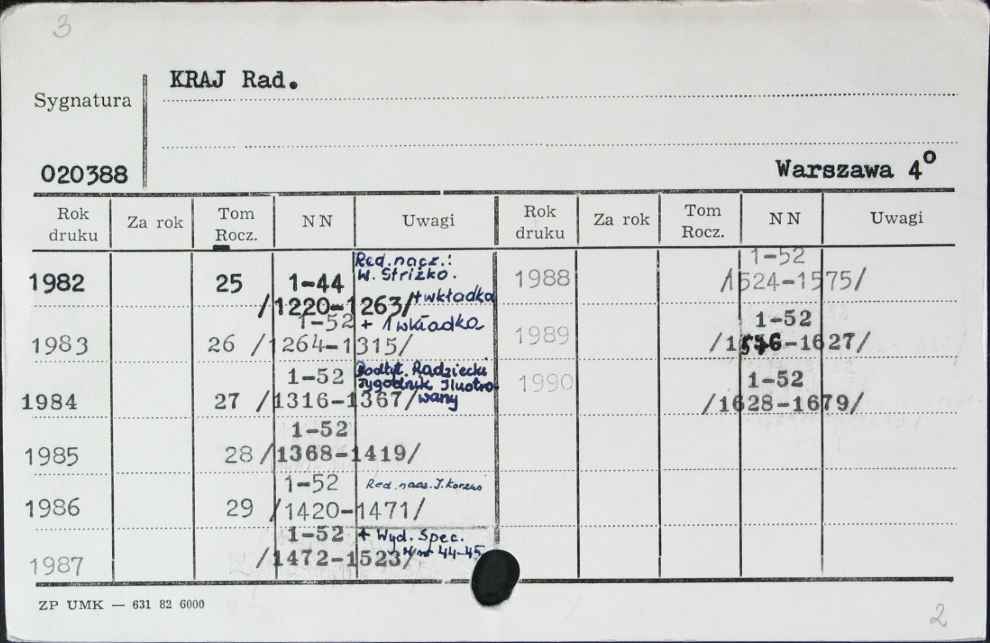 3
KRAJ Rad.
Sygnatura
020388
Warszawa 4°
Rok druku Za rok Tom Rocz. NN Uwagi Rok druku Za rok Tom Rocz. NN Uwagi
1982 25 1-44 /1220-1263/ Red. nacz.: W. Striżko. + wkładka
1983 26 1-52 /1264-1315/ + 1 wkładka
1984 27 1-52 /1316-1367/ Podtyt. Radziecki Tygodnik Ilustrowany
1985 28 1-52 /1368-1419/
1986 29 1-52 /1420-1471/ Red. nacz. J.
1987 1-52 /1472-1523/ + Wyd. Spec. 44-45
1988 1-52 /1524-1575/
1989 1-52 /1576-1627/
1990 1-52 /1628-1679/
ZP UMK — 631 82 6000
2